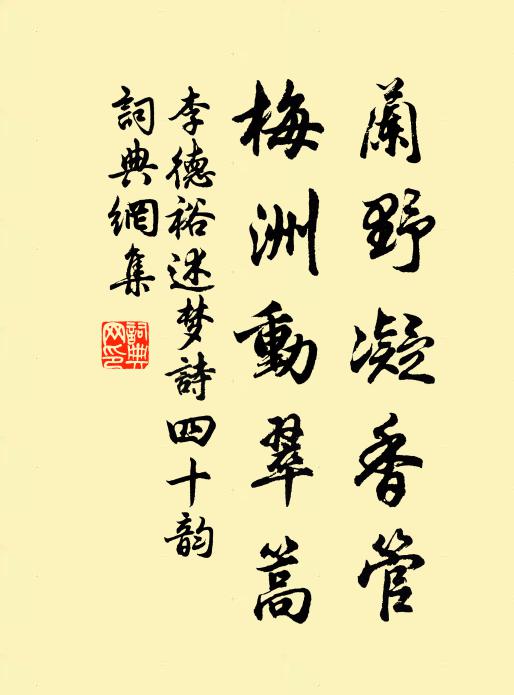 蘭野凝香管
梅洲動翠篙
李德裕述梦詩四十韵
詞典網集
詞典
网印